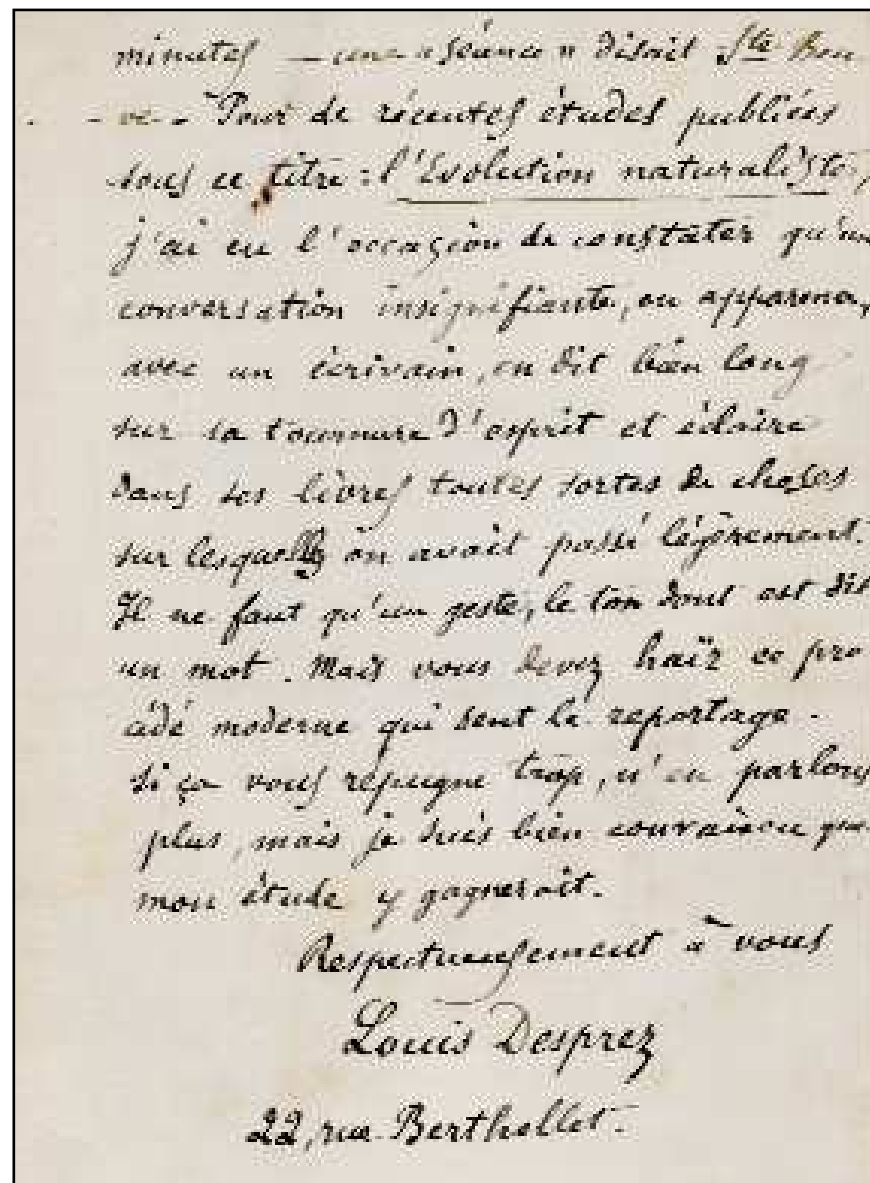 minutes — une « séance » disait Ste Beu-
-ve - Pour de récentes études publiées
sous ce titre : l'Evolution naturaliste,
j'ai eu l'occasion de constater qu'une
conversation insignifiante, en apparence,
avec un écrivain, en dit bien long
sur sa tournure d'esprit et éclaire
dans ses livres toutes sortes de choses
sur lesquelles on avait passé légèrement.
Il ne faut qu'un geste, le ton dont est dit
un mot. Mais vous devez haïr ce pro
cédé moderne qui sent le reportage.
Si ça vous répugne trop, n'en parlons
plus, mais je suis bien convaincu que
mon étude y gagnerait.
Respectueusement à vous
Louis Desprez
22, rue Berthollet.